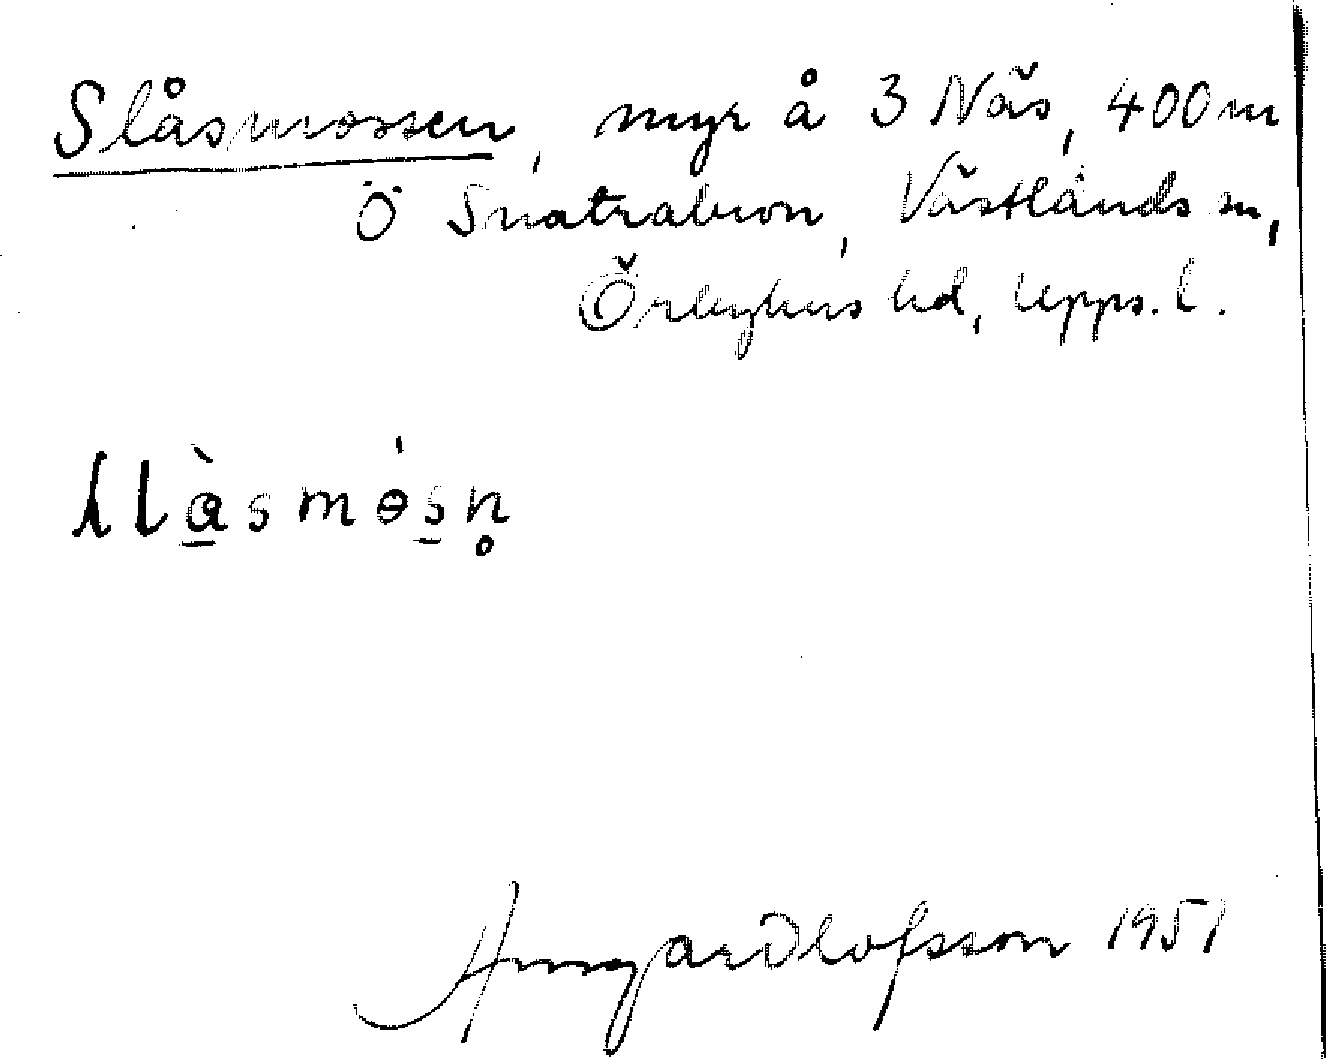 Slåsmossen, myr å 3 Näs, 400 m
Ö Snatrabron, Västlands sn,
Örbyhus hd, Upps. l.
Olofsson 1951